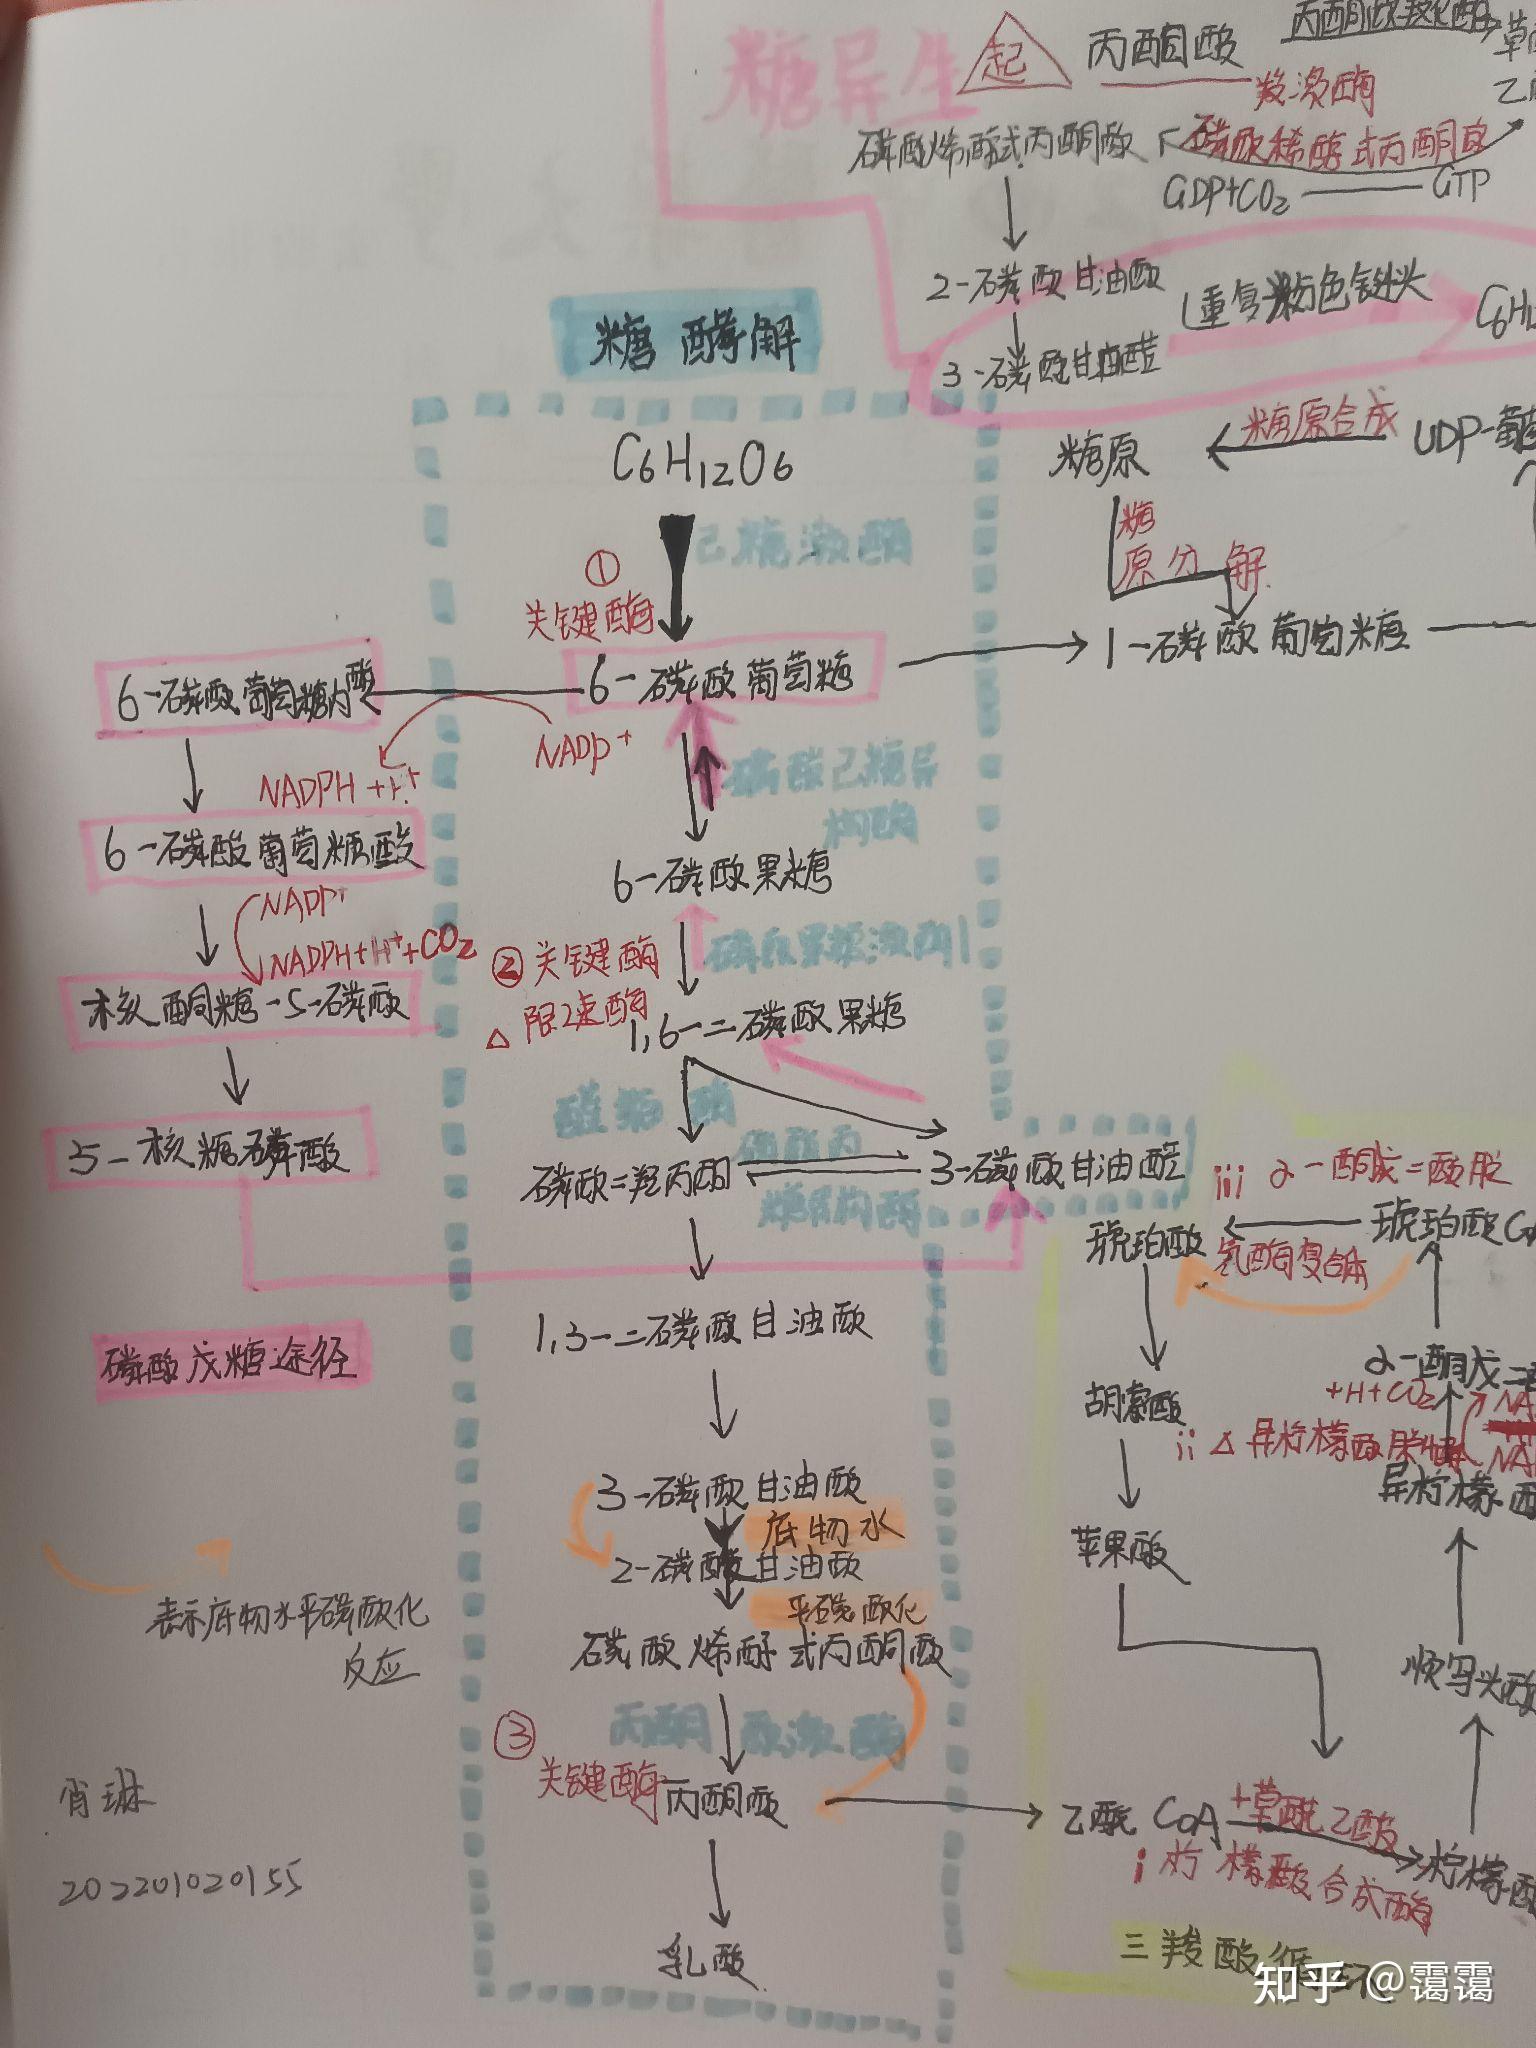 糖异生
起
丙酮酸
羧激酶
磷酸烯醇式丙酮酸
磷酸烯醇式丙酮
GDP+CO2
GTP
2-磷酸甘油酸
重复粉色箭头
3-磷酸甘油醛
糖酵解
C6H12O6
糖原
糖原合成
UDP-葡
己糖激酶
①
关键酶
糖
原分解
6-磷酸葡萄糖内酯
6-磷酸葡萄糖
1-磷酸葡萄糖
NADP+
NADPH+H+
磷酸己糖异
构酶
6-磷酸葡萄糖酸
6-磷酸果糖
NADP+
NADPH+H++CO2
②关键酶
磷酸果糖激酶1
△限速酶
核酮糖-5-磷酸
1,6-二磷酸果糖
醛缩酶
磷酸丙
5-核糖磷酸
磷酸二羟丙酮
3-磷酸甘油醛
糖异构酶
iii α-酮戊二酸脱
琥珀酸
琥珀酸C
氢酶复合体
1,3-二磷酸甘油酸
磷酸戊糖途径
α-酮戊二
+H+CO2
胡索酸
ii △异柠檬酸脱
异柠檬
3-磷酸甘油酸
底物水
2-磷酸甘油酸
平磷酸化
苹果酸
表示底物水平磷酸化
反应
磷酸烯醇式丙酮酸
顺乌头酸
丙酮酸激酶
③
关键酶
丙酮酸
乙酰CoA
+草酰乙酸
柠檬
i 柠檬酸合成酶
肖琳
202201020155
乳酸
三羧酸循环
知乎 @霭霭